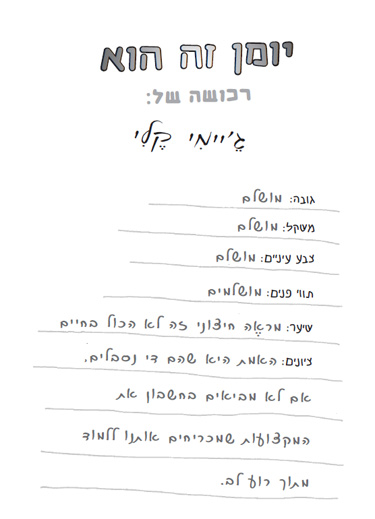 יומן זה הוא
רכושה של:
ג'יימי קלי
גובה: מושלם
משקל: מושלם
צבע עיניים: מושלם
תווי פנים: מושלמים
שיער: מראֶה חיצוני זה לא הכול בחיים
ציונים: האמת היא שהם די נסבלים,
אם לא מביאים בחשבון את
המקצועות שמכריחים אותנו ללמוד
מתוך רוע לב.